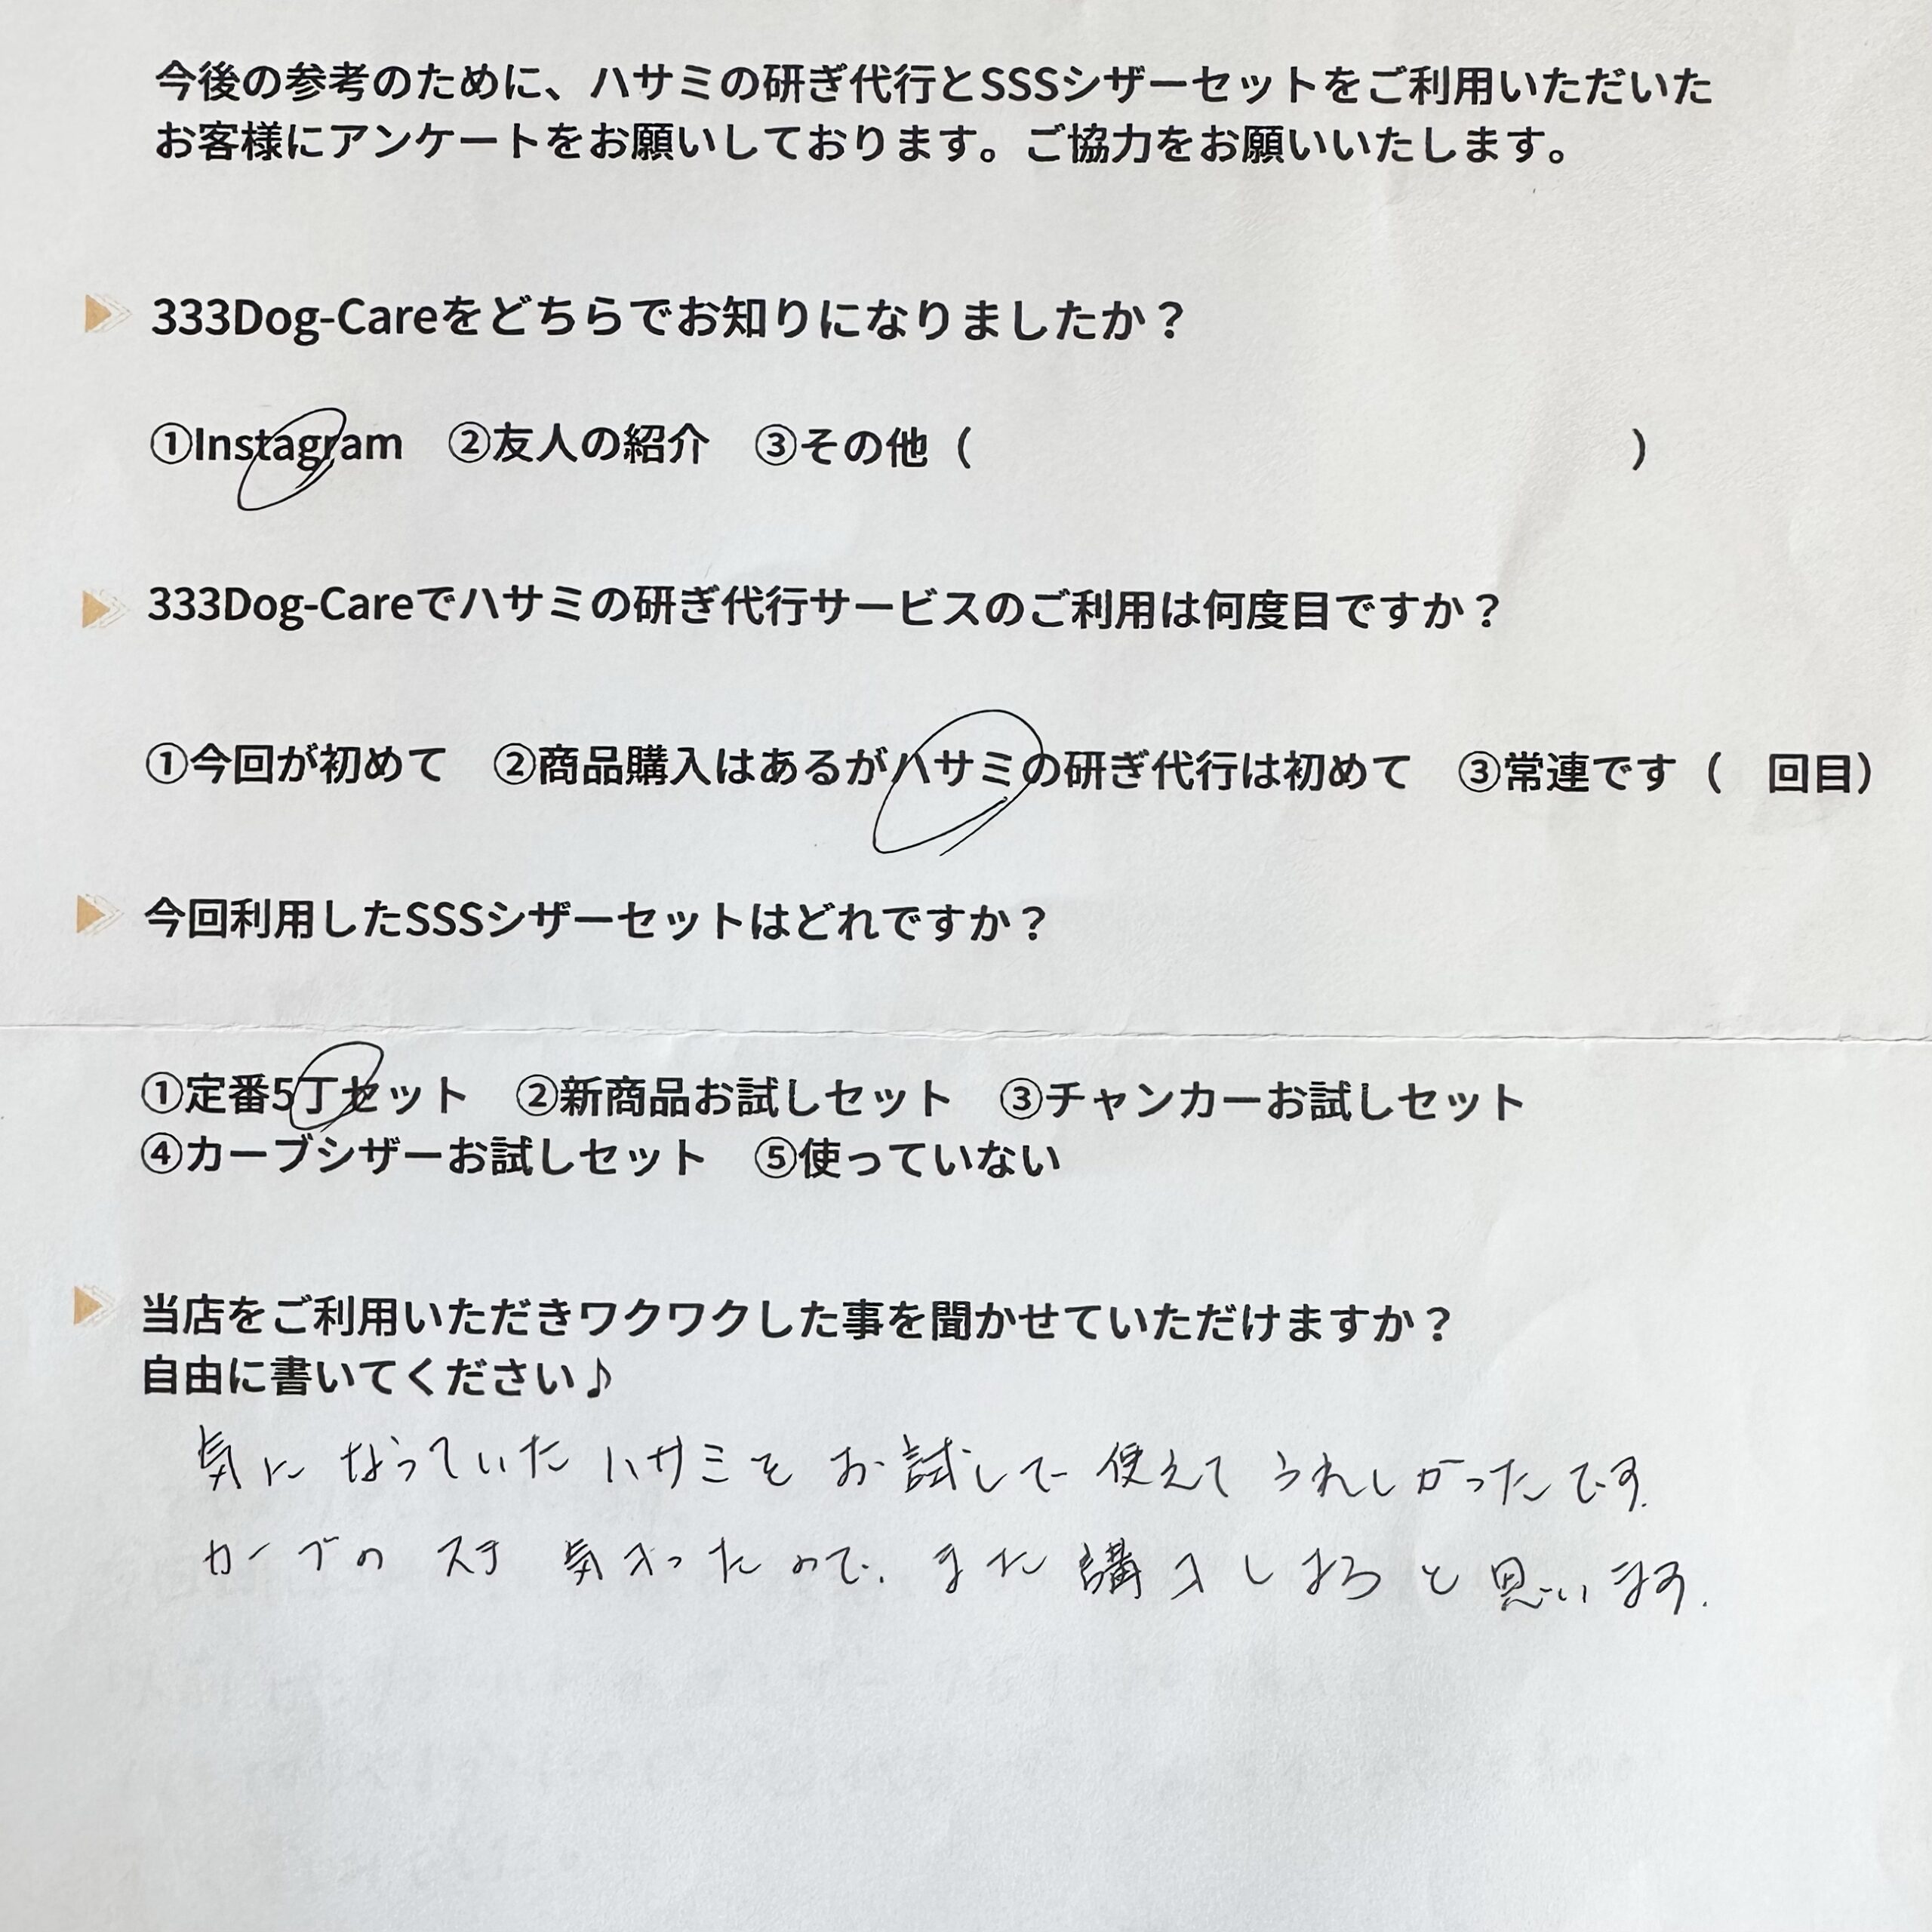 今後の参考のために、ハサミの研ぎ代行とSSSシザーセットをご利用いただいた
お客様にアンケートをお願いしております。ご協力をお願いいたします。
333Dog-Careをどちらでお知りになりましたか？
①Instagram　②友人の紹介　③その他（　　　　　　　　　　　　　　　）
333Dog-Careでハサミの研ぎ代行サービスのご利用は何度目ですか？
①今回が初めて　②商品購入はあるがハサミの研ぎ代行は初めて　③常連です（　回目）
今回利用したSSSシザーセットはどれですか？
①定番5丁セット　②新商品お試しセット　③チャンカーお試しセット
④カーブシザーお試しセット　⑤使っていない
当店をご利用いただきワクワクした事を聞かせていただけますか？
自由に書いてください♪
気になっていたハサミをお試しで使えてうれしかったです.
カーブの スキ 気入ったので、また講入しようと思います.